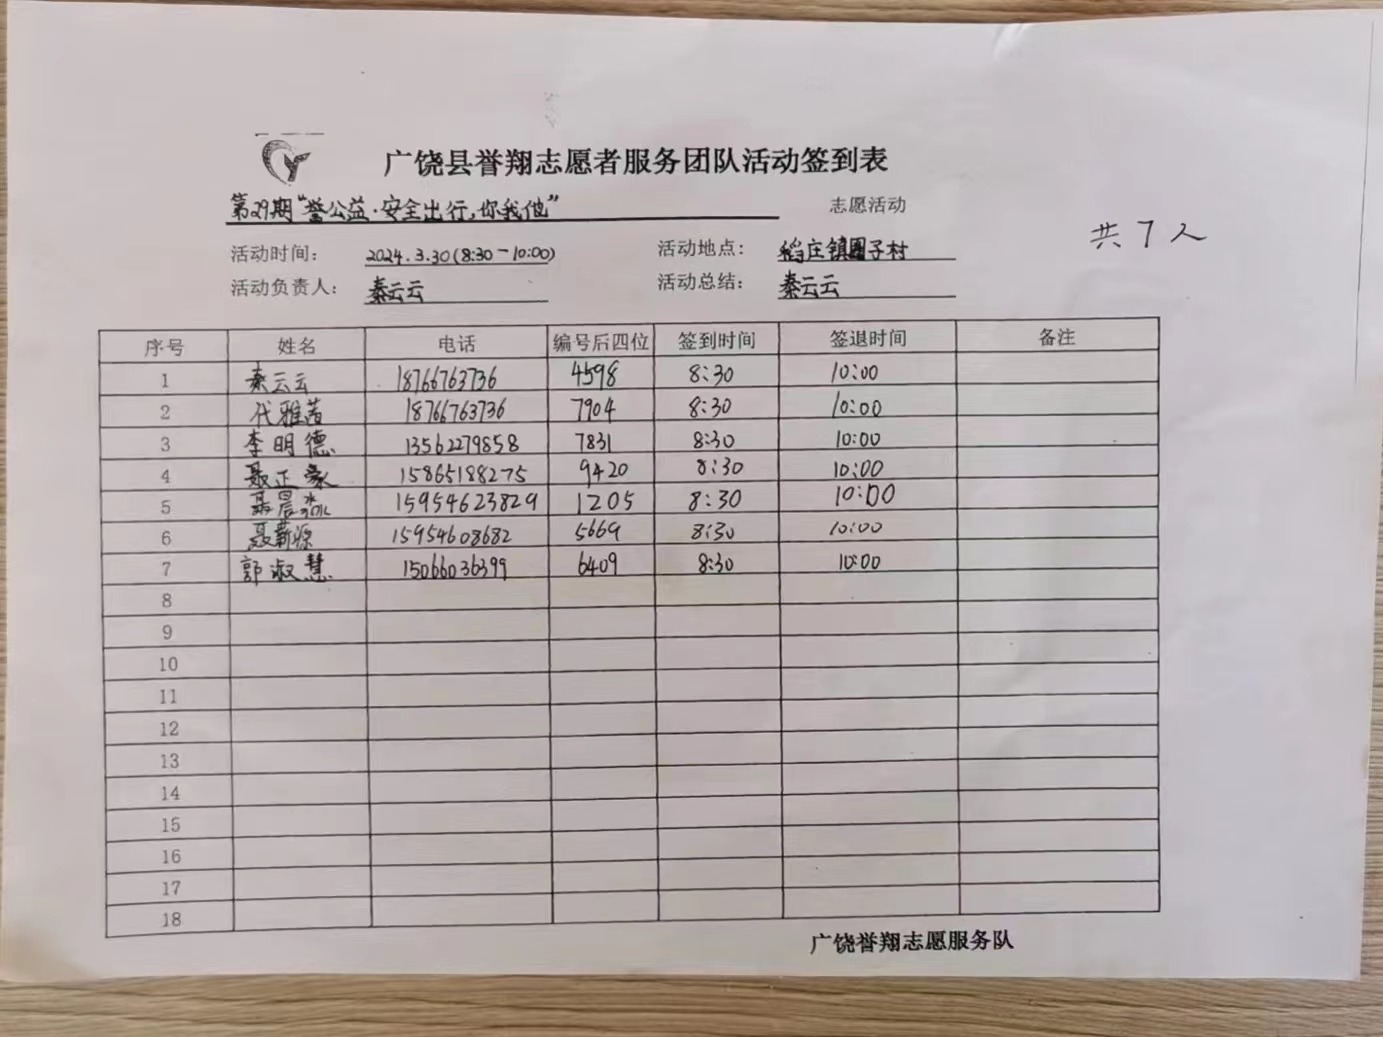 广饶县誉翔志愿者服务团队活动签到表
第29期"誉公益·安全出行,你我他" 志愿活动
共7人
活动时间: 2024.3.30(8:30-10:00) 活动地点: 稻庄镇圈子村
活动负责人: 秦云云 活动总结: 秦云云
序号 姓名 电话 编号后四位 签到时间 签退时间 备注
1 秦云云 18766763736 4598 8:30 10:00
2 代雅茜 18766763736 7904 8:30 10:00
3 李明德 13562279858 7831 8:30 10:00
4 聂正豪 15865188275 9420 8:30 10:00
5 聂晨淼 15954623829 1205 8:30 10:00
6 聂薪源 15954608682 5669 8:30 10:00
7 郭淑慧 15066036399 6409 8:30 10:00
8
9
10
11
12
13
14
15
16
17
18
广饶誉翔志愿服务队